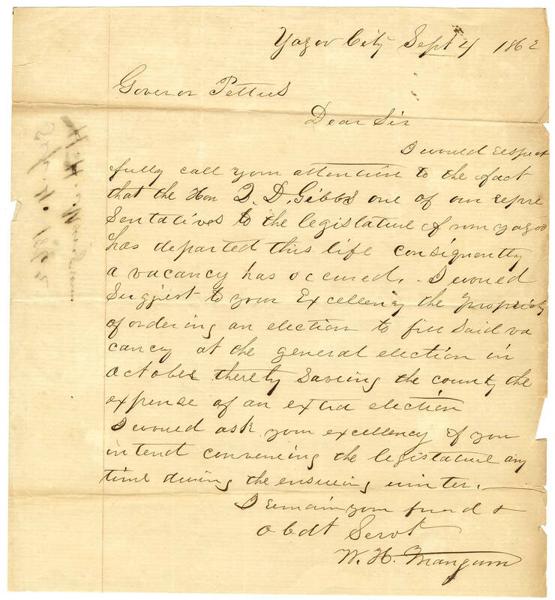 Yazoo City Sept 4 1862
Govenor Pettus
Dear Sir
I would respect
fully call your attention to the fact
that the Hon Q. D. Gibbs one of our repre
sentatives to the legislature from yazoo
has departed this life consiquently
a vacancy has occured. I would
Suggest to your Excellency the propriety
of ordering an election to fill said va
cancy at the general election in
October thereby saving the county the
expense of an extra election
I would ask your excellency if you
intend convening the legislature any
time during the ensueing winter.
I remain your friend &
obdt Servt
W. H. Mangum